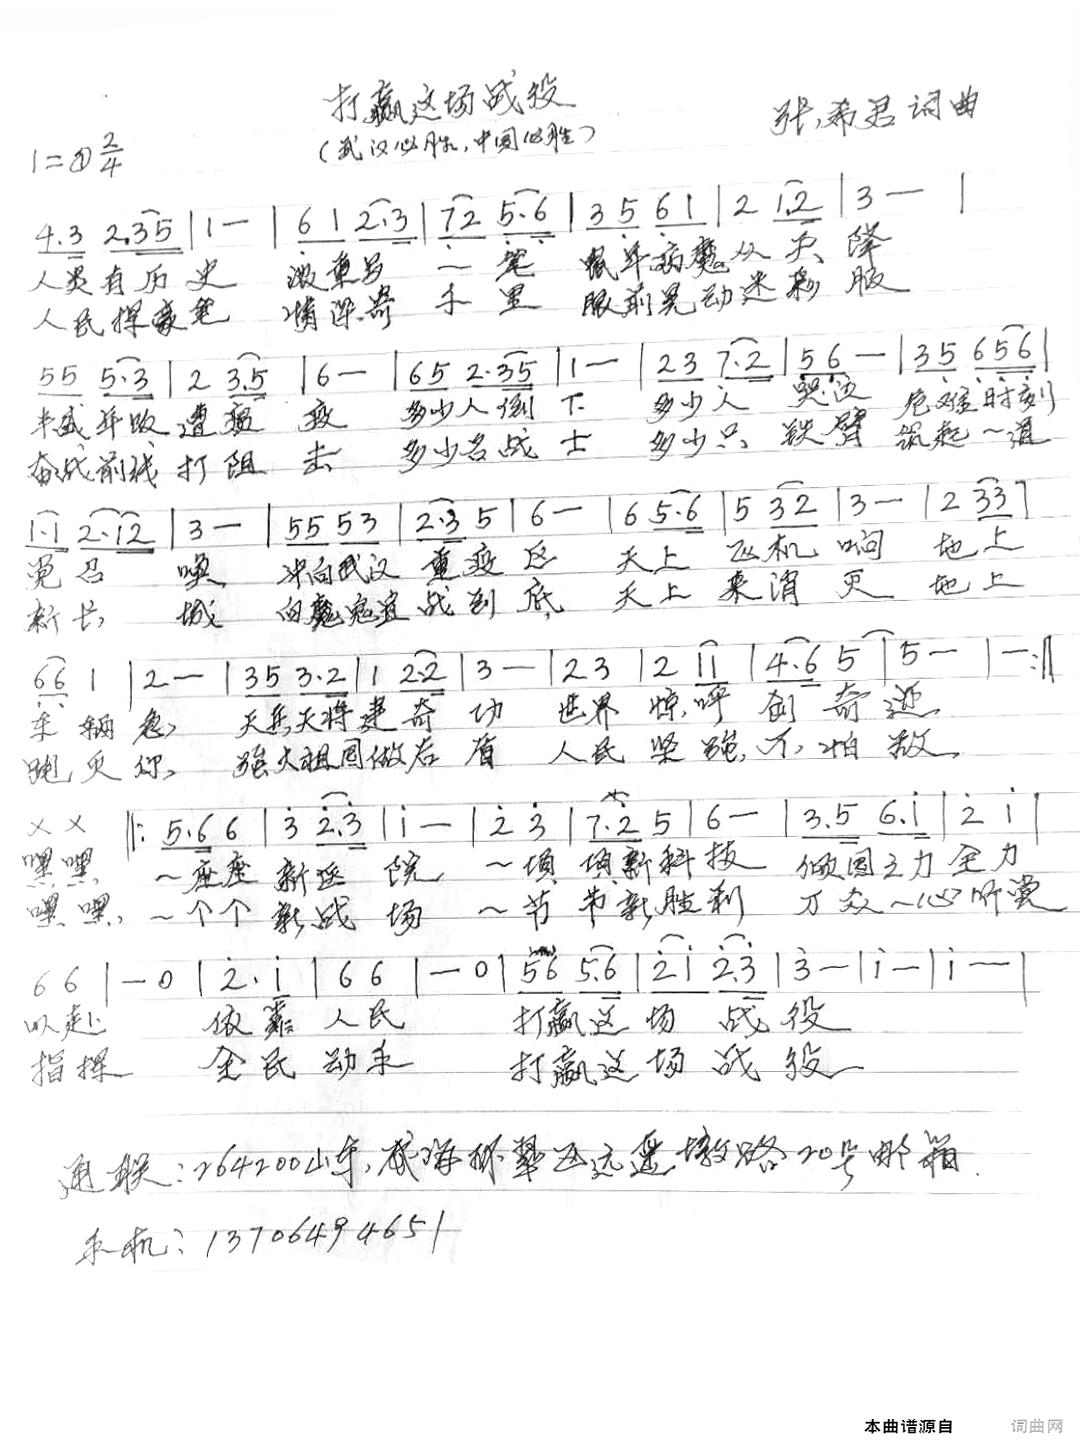 打赢这场战役
(武汉必胜,中国必胜)
张希君词曲
1=④ 2/4
4.3 2.35 | 1 — | 6 1 2.3 | 72 5.6 | 3 5 6 1 | 2 1.2 | 3 — |
人类有历史 浓重另一笔 鼠年病魔从天降
人民挥豪笔 情深寄手里 眼前晃动迷彩服
55 5.3 | 2 3.5 | 6 — | 65 2.35 | 1 — | 23 7.2 | 56 — | 35 656 |
丰盛年败遭瘟疫 多少人倒下 多少人哭泣 危难时刻
奋战前线打阻击 多少名战士 多少只铁臂 筑起一道
1.1 2.12 | 3 — | 55 53 | 2.3 5 | 6 — | 6 5.6 | 5 32 | 3 — | 2 33 |
党召唤 冲向武汉重疫区 天上飞机鸣 地上
新长城 向魔寇宣战到底 天上来消灭 地上
66 1 | 2 — | 35 3.2 | 1 2.2 | 3 — | 23 | 2 11 | 4.6 5 | 5 — | — :||
车辆急, 天兵天将建奇功 世界惊呼创奇迹
跑灭你, 强大祖国做后盾 人民坚强不怕敌
X X ||: 5.6 6 | 3 2.3 | 1 — | 2 3 | 7.2 5 | 6 — | 3.5 6.1 | 2 1 |
嘿嘿 一座座新医院 一项项新科技 倾国之力全力
嘿嘿, 一个个新战场 一节节新胜利 万众一心听党
6 6 | — 0 | 2. 1 | 6 6 | — 0 | 56 5.6 | 21 2.3 | 3 — | 1 — | 1 — |
以赴 依靠人民 打赢这场战役
指挥 全民动手 打赢这场战役
通联:264200山东,威海环翠区远遥墩路20号邮箱.
手机:13706494651
本曲谱源自 词曲网